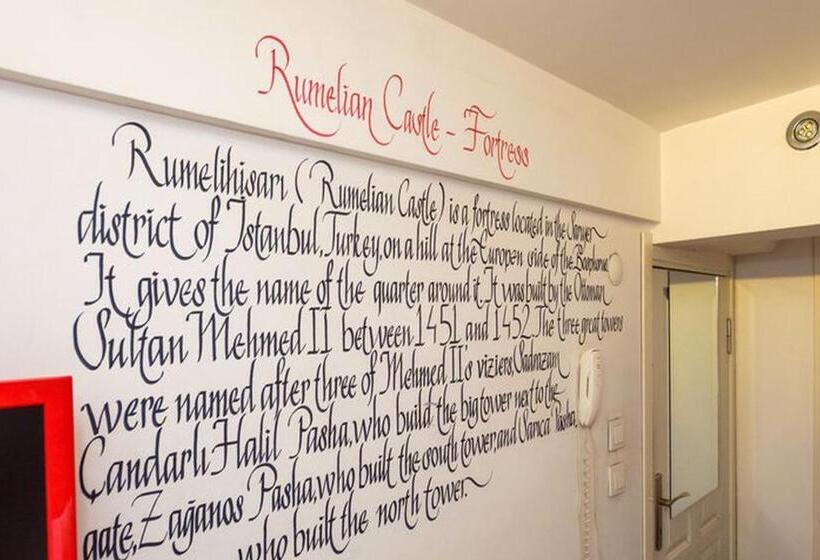 Rumelian Castle - Fortress
Rumelihisarı (Rumelian Castle) is a fortress located in the Sarıyer
district of Istanbul, Turkey, on a hill at the Europen side of the Bosphorus.
It gives the name of the quarter around it. It was built by the Ottoman
Sultan Mehmed II between 1451 and 1452. The three great towers
were named after three of Mehmed II's viziers, Sadrazam
Çandarlı Halil Pasha, who build the big tower next to the
gate, Zağanos Pasha, who built the south tower, and Sarıca Pasha,
who built the north tower.